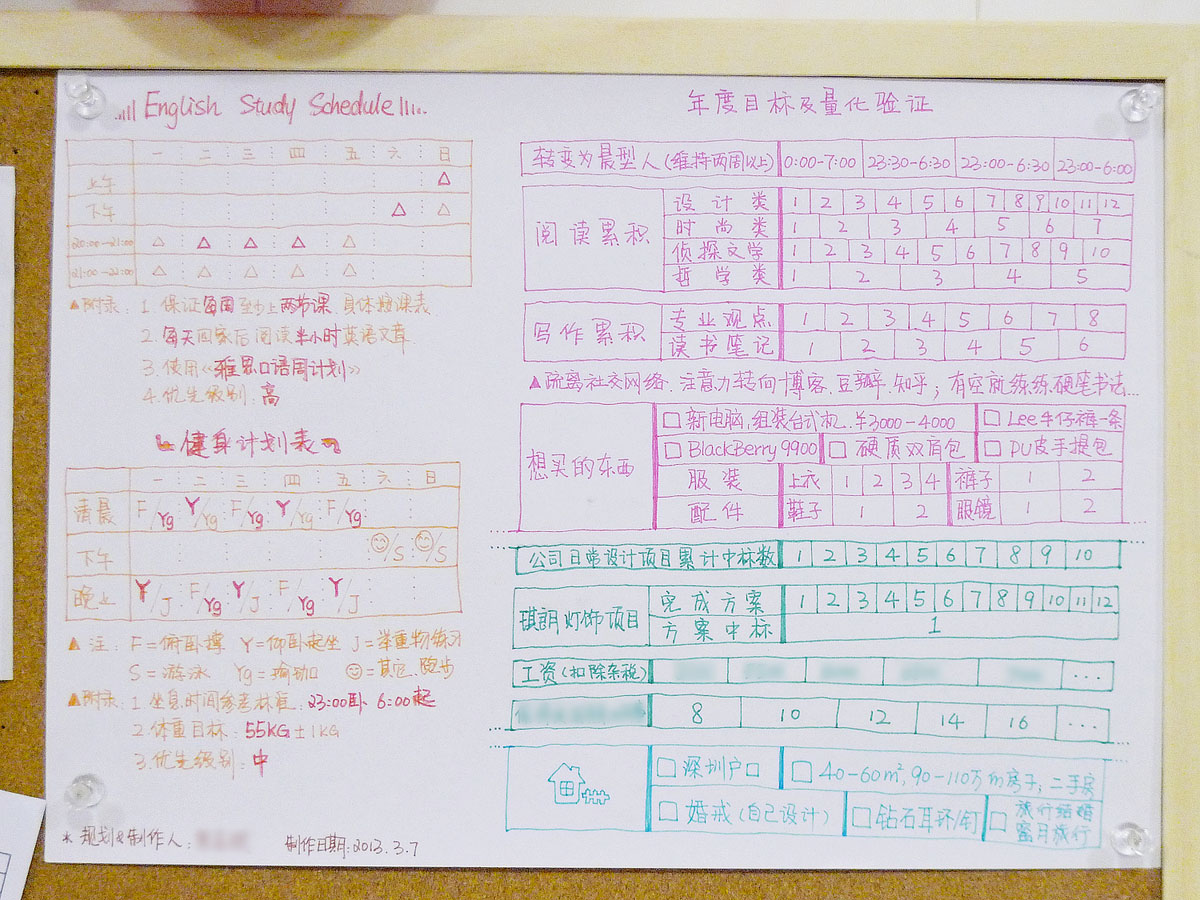 English Study Schedule
一 二 三 四 五 六 日
上午 △
下午 △ △
20:00-21:00 △ △ △ △ △
21:00-22:00 △ △ △ △ △
▲附录: 1. 保证每周至少上两节课
2. 每天回家后阅读半小时英语文章
3. 使用《雅思口语周计划》
4. 优先级别: 高
健身计划表
一 二 三 四 五 六 日
清晨 F/Yg Y/Yg F/Yg Y/Yg F/Yg
下午 ☺/S ☺/S
晚上 Y/J F/Yg Y/J F/Yg Y/J
▲注: F=俯卧撑 Y=仰卧起坐 J=举重物练习
S=游泳 Yg=瑜珈 ☺=其它.跑步
▲附录: 1. 23:00卧 6:00起
2. 体重目标: 55KG±1KG
3. 优先级别: 中
*规划&制作人: 制作日期: 2013.3.7
年度目标及量化验证
转变为晨型人(维持两周以上) 0:00-7:00 23:30-6:30 23:00-6:30 23:00-6:00
阅读累积
设计类 1 2 3 4 5 6 7 8 9 10 11 12
时尚类 1 2 3 4 5 6 7
侦探文学 1 2 3 4 5 6 7 8 9 10
哲学类 1 2 3 4 5
写作累积
专业观点 1 2 3 4 5 6 7 8
读书笔记 1 2 3 4 5 6
▲疏离社交网络.注意力转向博客.豆瓣.知乎;有空就练练硬笔书法...
想买的东西
□新电脑.组装台式机.¥3000-4000 □Lee牛仔裤一条
□BlackBerry 9900 □硬质双肩包 □PU皮手提包
服装 上衣 1 2 3 4 裤子 1 2
配件 鞋子 1 2 眼镜 1 2
公司日常设计项目累计中标数 1 2 3 4 5 6 7 8 9 10
琪朗灯饰项目
完成方案 1 2 3 4 5 6 7 8 9 10 11 12
方案中标 1
工资(扣除杂税) ...
8 10 12 14 16 ...
□深圳户口 □40-60m²,90-110万的房子;二手房
□婚戒(自己设计) □钻石耳环/钉 □旅行结婚
蜜月旅行